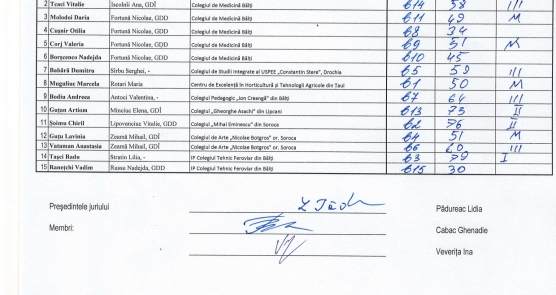 2 Tcaci Vitalie Iscolnîi Ana, GDÎ Colegiul de Medicină Bălți 614 58 III
3 Molodoi Daria Fortună Nicolae, GDD Colegiul de Medicină Bălți 611 49 M
4 Cușnir Otilia Fortună Nicolae, GDD Colegiul de Medicină Bălți 68 34
5 Corj Valeria Fortună Nicolae, GDD Colegiul de Medicină Bălți 69 51 M
6 Borșcenco Nadejda Fortună Nicolae, GDD Colegiul de Medicină Bălți 610 45
7 Bahără Dumitru Sîrbu Serghei, - Colegiul de Studii Integrate al USPEE „Constantin Stere", Drochia 65 59 III
8 Mugaliuc Marcela Rotari Maria Centru de Excelență în Horticultură și Tehnologii Agricole din Țaul 61 50 M
9 Bodiu Andreea Antoci Valentina, - Colegiul Pedagogic „Ion Creangă" din Bălți 67 64 III
10 Guțan Artiom Minciuc Elena, GDÎ Colegiul „Gheorghe Asachi" din Lipcani 613 73 II
11 Șoimu Chiril Lipovanciuc Vitalie, GDD Colegiul „Mihai Eminescu" din Soroca 62 76 II
12 Guțu Lavinia Zeamă Mihail, GDÎ Colegiul de Arte „Nicolae Botgros" or. Soroca 64 51 M
13 Vataman Anastasia Zeamă Mihail, GDÎ Colegiul de Arte „Nicolae Botgros" or. Soroca 66 60 III
14 Tașci Radu Stratin Lilia, - IP Colegiul Tehnic Feroviar din Bălți 63 79 I
15 Ranețchi Vadim Russu Nadejda, GDD IP Colegiul Tehnic Feroviar din Bălți 615 30
Președintele juriului Pădureac Lidia
Membri: Cabac Ghenadie
Veverița Ina